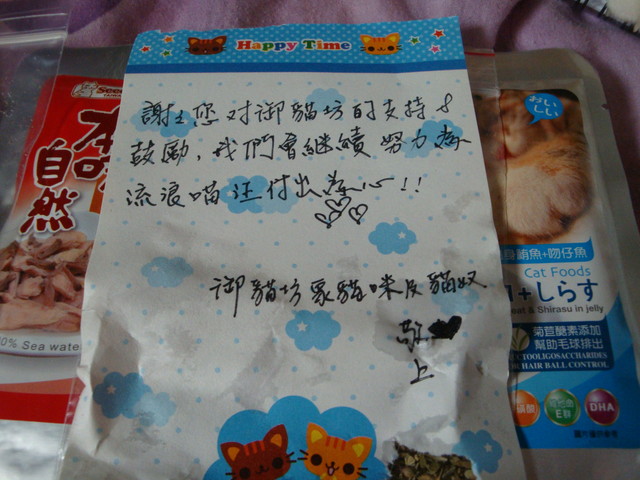 Happy Time
謝謝您对御貓坊的支持&
鼓勵,我們會繼續努力為
流浪喵咪付出愛心!!
御貓坊眾貓咪及貓奴
敬
上
See
本
自然
0% Sea wate
おいしい
鮪魚+吻仔魚
Cat Foods
+しらす
eat & Shirasu in jelly
菊苣醣素添加
幫助毛球排出
CTOOLIGOSACCHARIDES
FOR HAIR BALL CONTROL
E群
DHA